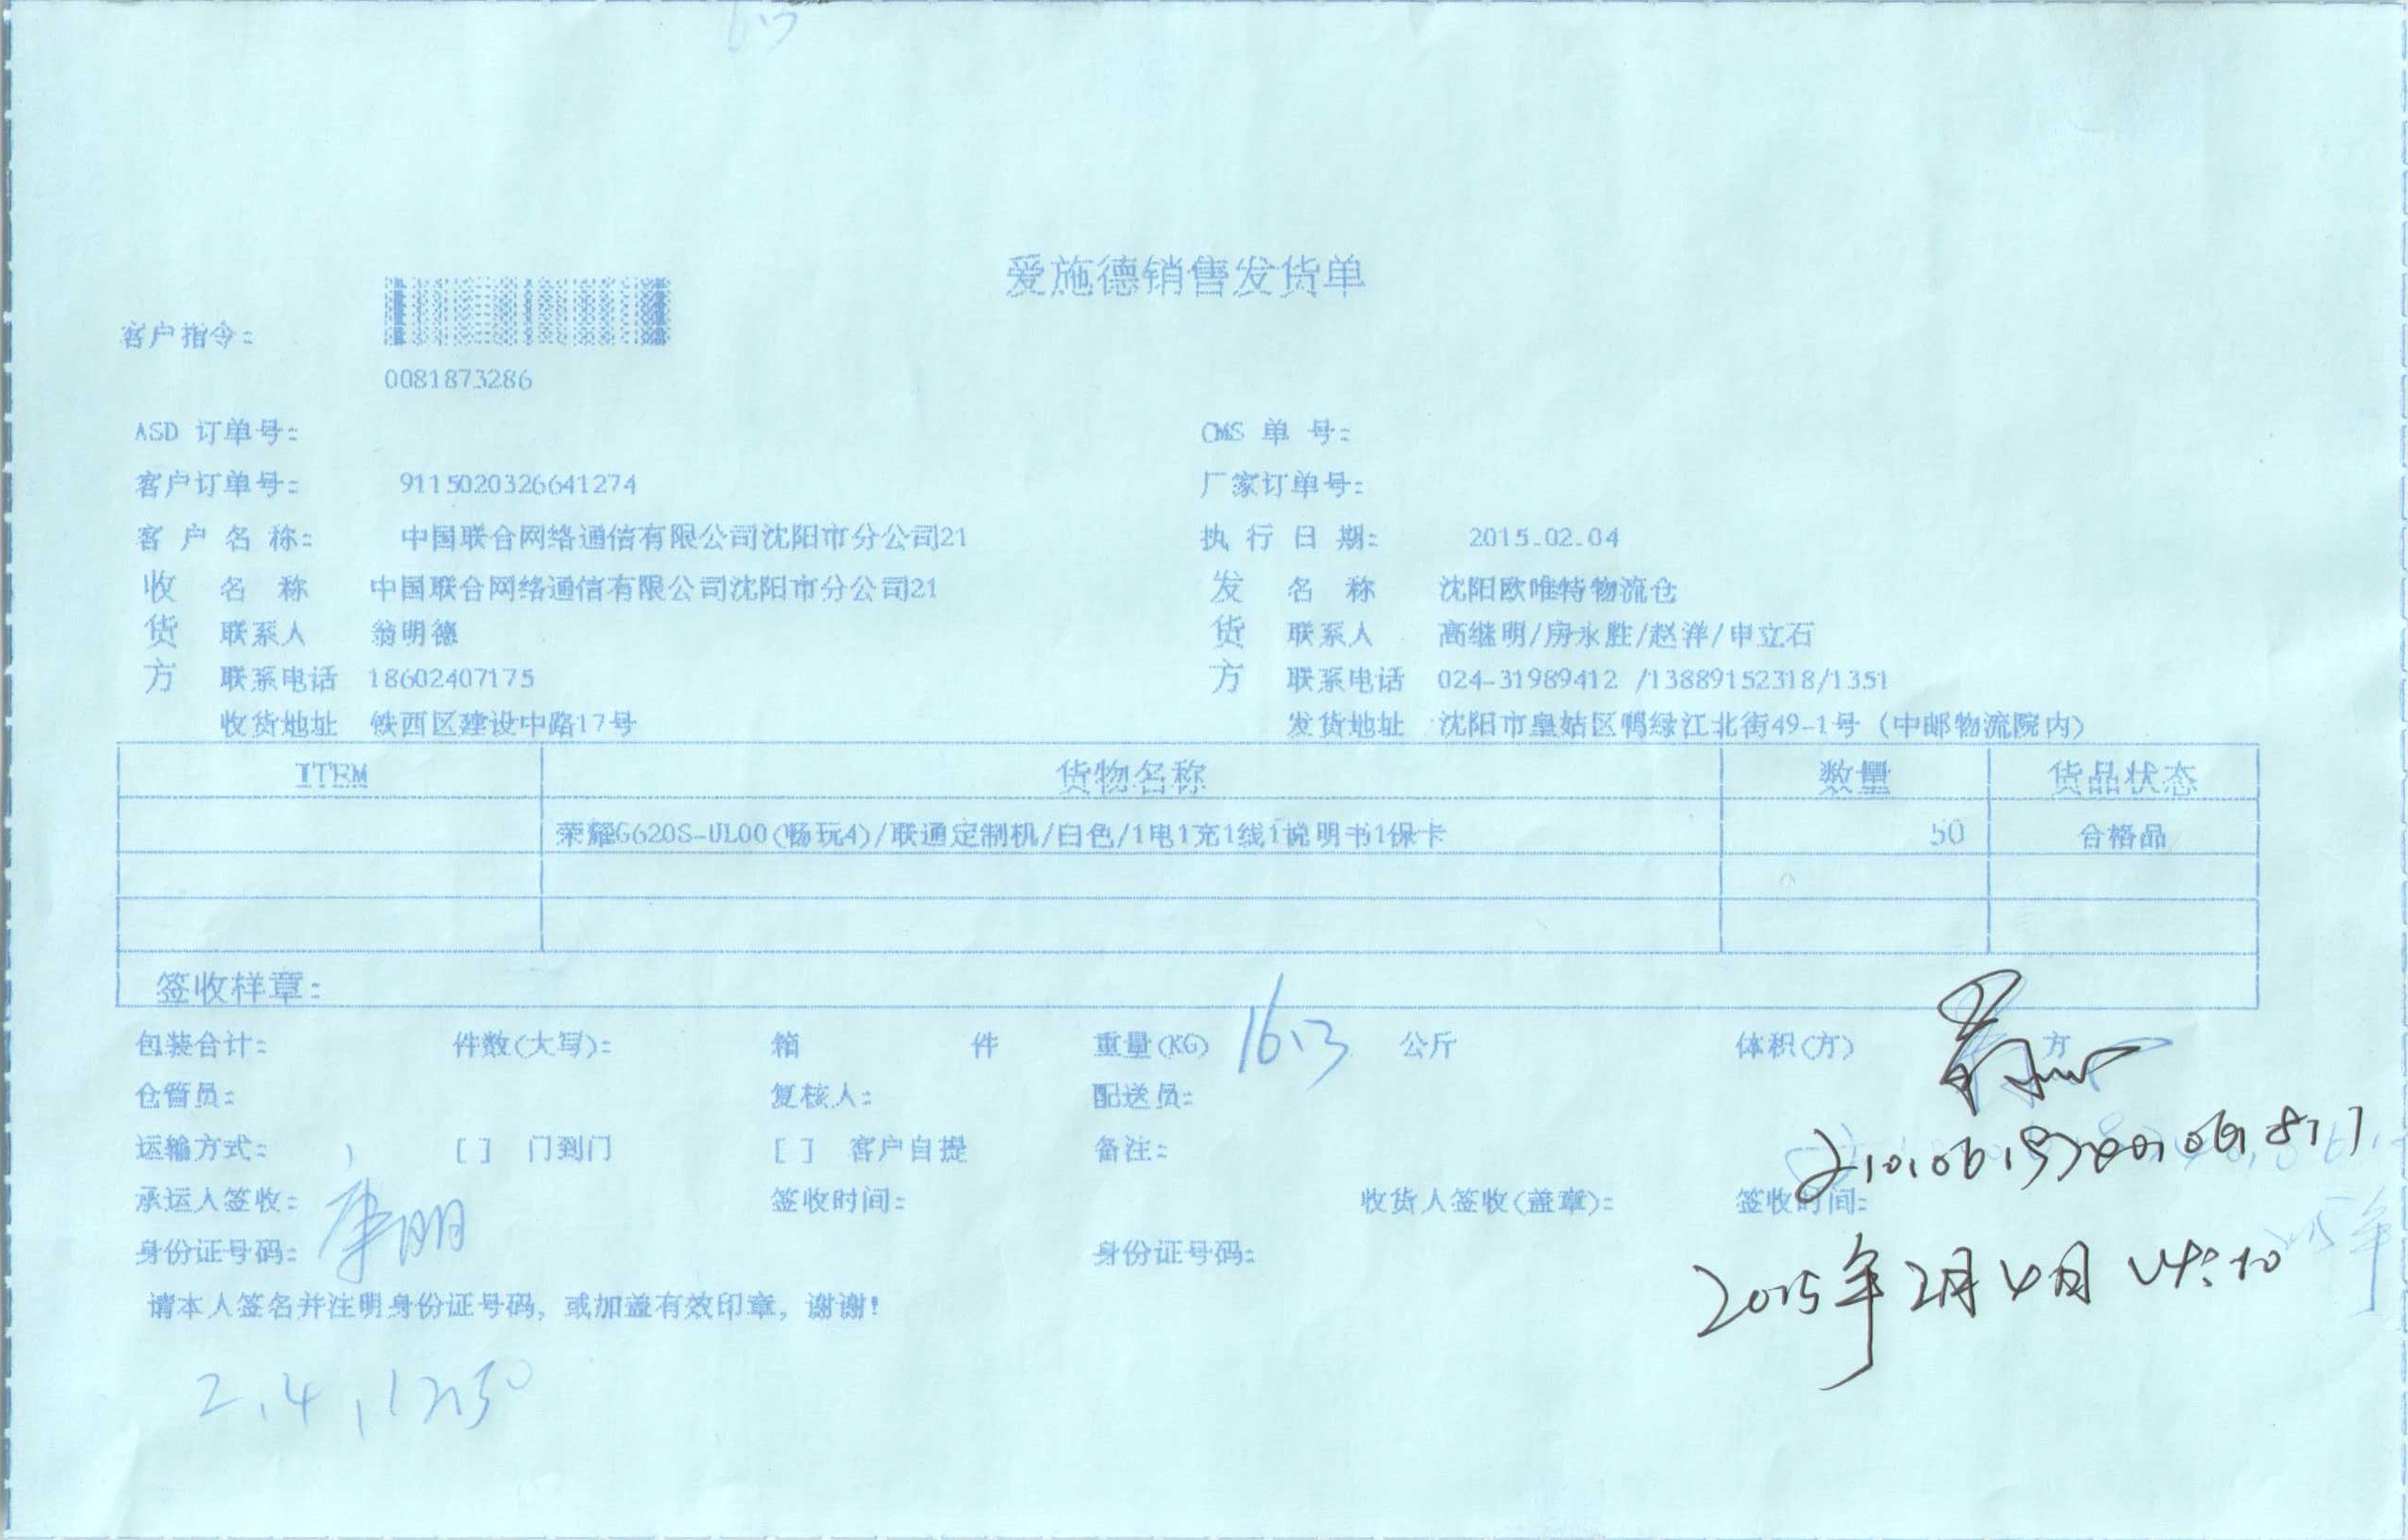 爱施德销售发货单
客户指令:
0081873286
ASD 订单号: CMS 单 号:
客户订单号: 9115020326641274 厂家订单号:
客 户 名 称: 中国联合网络通信有限公司沈阳市分公司21 执 行 日 期: 2015.02.04
收 名 称 中国联合网络通信有限公司沈阳市分公司21 发 名 称 沈阳欧唯特物流仓
货 联系人 翁明德 货 联系人 高继明/房永胜/赵洋/申立石
方 联系电话 18602407175 方 联系电话 024-31989412 /13889152318/1351
收货地址 铁西区建设中路17号 发货地址 沈阳市皇姑区鸭绿江北街49-1号 (中邮物流院内)
ITEM 货物名称 数量 货品状态
荣耀G620S-UL00(畅玩4)/联通定制机/白色/1电1充1线1说明书1保卡 50 合格品
签收样章:
包装合计: 件数(大写): 箱 件 重量(KG) 16.3 公斤 体积(方) 方
仓管员: 复核人: 配送员:
运输方式: [ ] 门到门 [ ] 客户自提 备注:
承运人签收: 签收时间: 收货人签收(盖章): 签收时间:
身份证号码: 身份证号码:
2015年2月4日 14:10
请本人签名并注明身份证号码, 或加盖有效印章, 谢谢!
2.4,1250